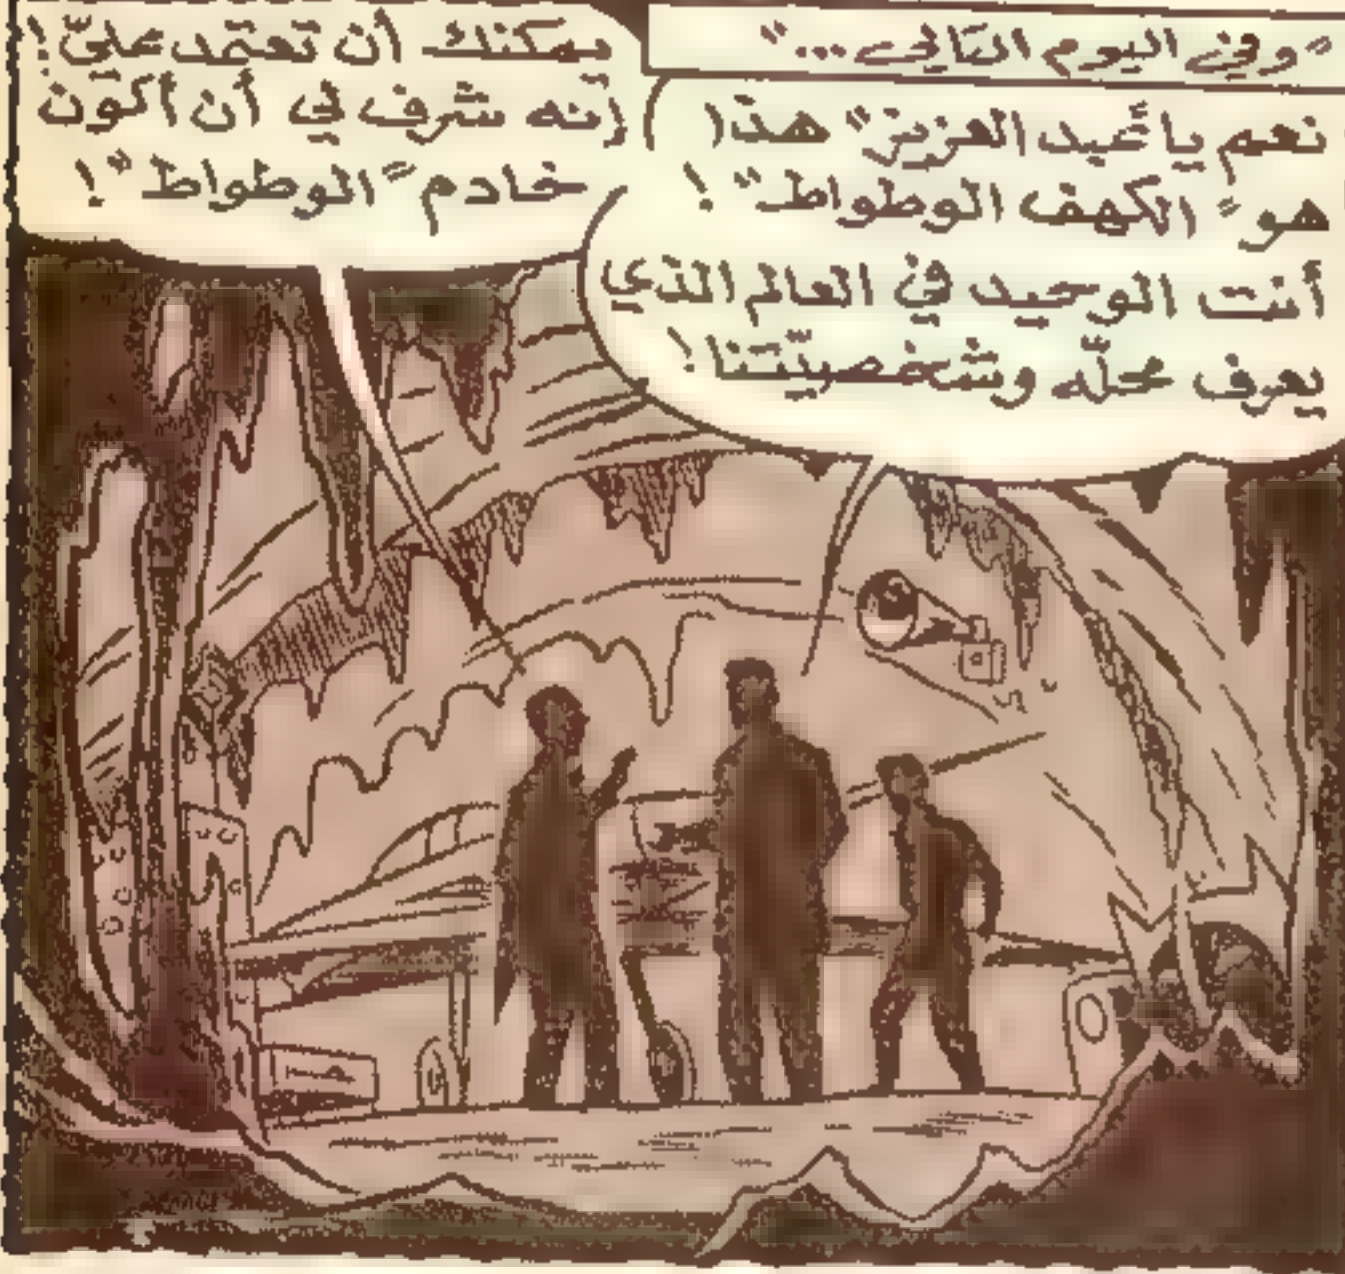 "وفي اليوم التالي..."
نعم يا "عبد العزيز" هذا
هو "الكهف الوطواط"!
أنت الوحيد في العالم الذي
يعرف محلّه وشخصيّتنا!
يمكنك أن تعتمد عليّ!
إنه شرف لي أن أكون
خادم "الوطواط"!